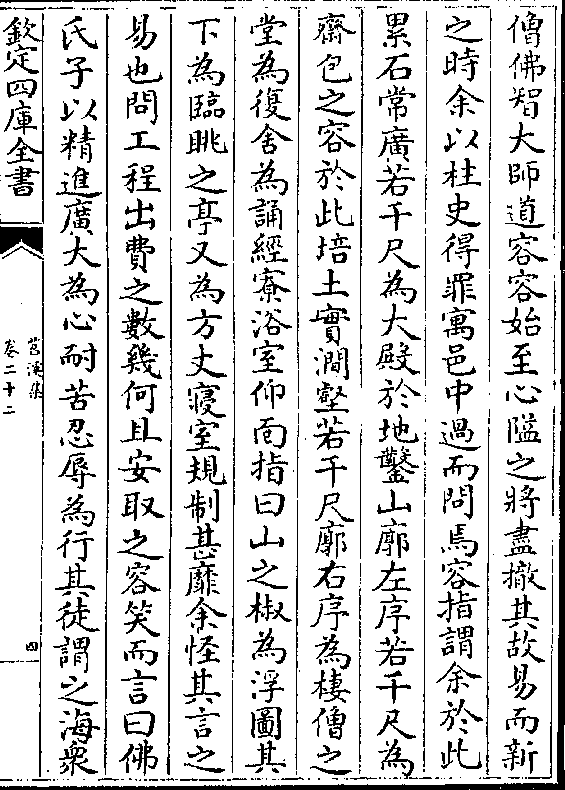 僧佛智大師道容容始至心隘之將盡撤其故易而新
之時余以柱史得罪寓邑中過而問焉容指謂余於此
累石常廣若干尺為大殿於地鑿山廓左序若干尺為
齋包之容於此培土實澗壑若干尺廓右序為棲僧之
堂為復舍為誦經寮浴室仰而指曰山之椒為浮圖其
下為臨眺之亭又為方丈寢室規制甚靡余怪其言之
易也問工程出費之數幾何且安取之容笑而言曰佛
氏子以精進廣大為心耐苦忍辱為行其徒謂之海衆
欽定四庫全書
苕溪集
卷二十二
四